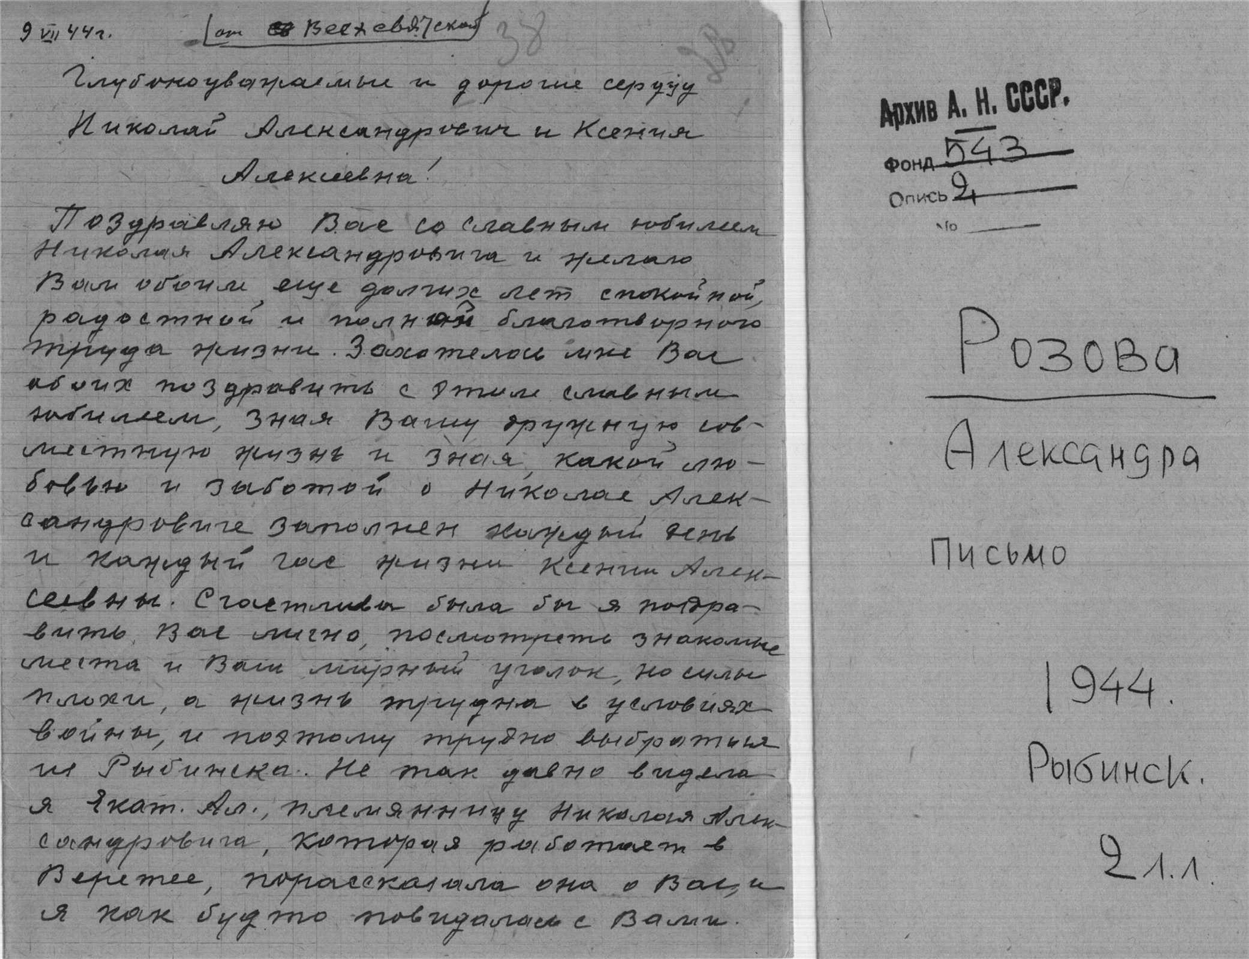 9 VII 44 г.
(от Всехсвятской)
38
28
Глубокоуважаемые и дорогие сердцу
Николай Александрович и Ксения
Алексеевна!
Поздравляю Вас со славным юбилеем
Николая Александровича и желаю
Вам обоим еще долгих лет спокойной,
радостной и полной благотворного
труда жизни. Захотелось мне Вас
обоих поздравить с этим славным
юбилеем, зная Вашу дружную сов-
местную жизнь и зная, какой лю-
бовью и заботой о Николае Алек-
сандровиче заполнен каждый день
и каждый час жизни Ксении Алек-
сеевны. Счастлива была бы я поздра-
вить Вас лично, посмотреть знакомые
места и Ваш мирный уголок, но силы
плохи, а жизнь трудна в условиях
войны, и поэтому трудно выбраться
из Рыбинска. Не так давно видела
я Екат. Ал., племянницу Николая Алек-
сандровича, которая работает в
Веретее, порассказала она о Вас, и
я как будто повидалась с Вами.
Архив А. Н. СССР.
Фонд 543
Опись 2
№
Розова
Александра
Письмо
1944.
Рыбинск.
2 л.л.